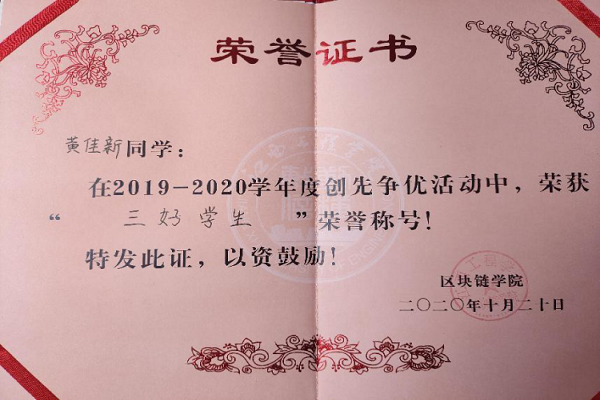 荣誉证书
黄佳新同学：
在2019-2020学年度创先争优活动中，荣获
“三好学生”荣誉称号！
特发此证，以资鼓励！
区块链学院
二〇二〇年十月二十日